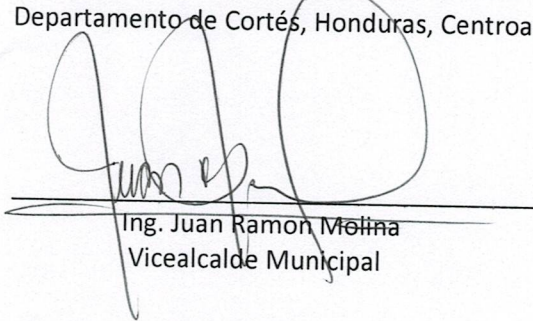 Departamento de Cortés, Honduras, Centroa
Juan
Ing. Juan Ramon Molina
Vicealcalde Municipal